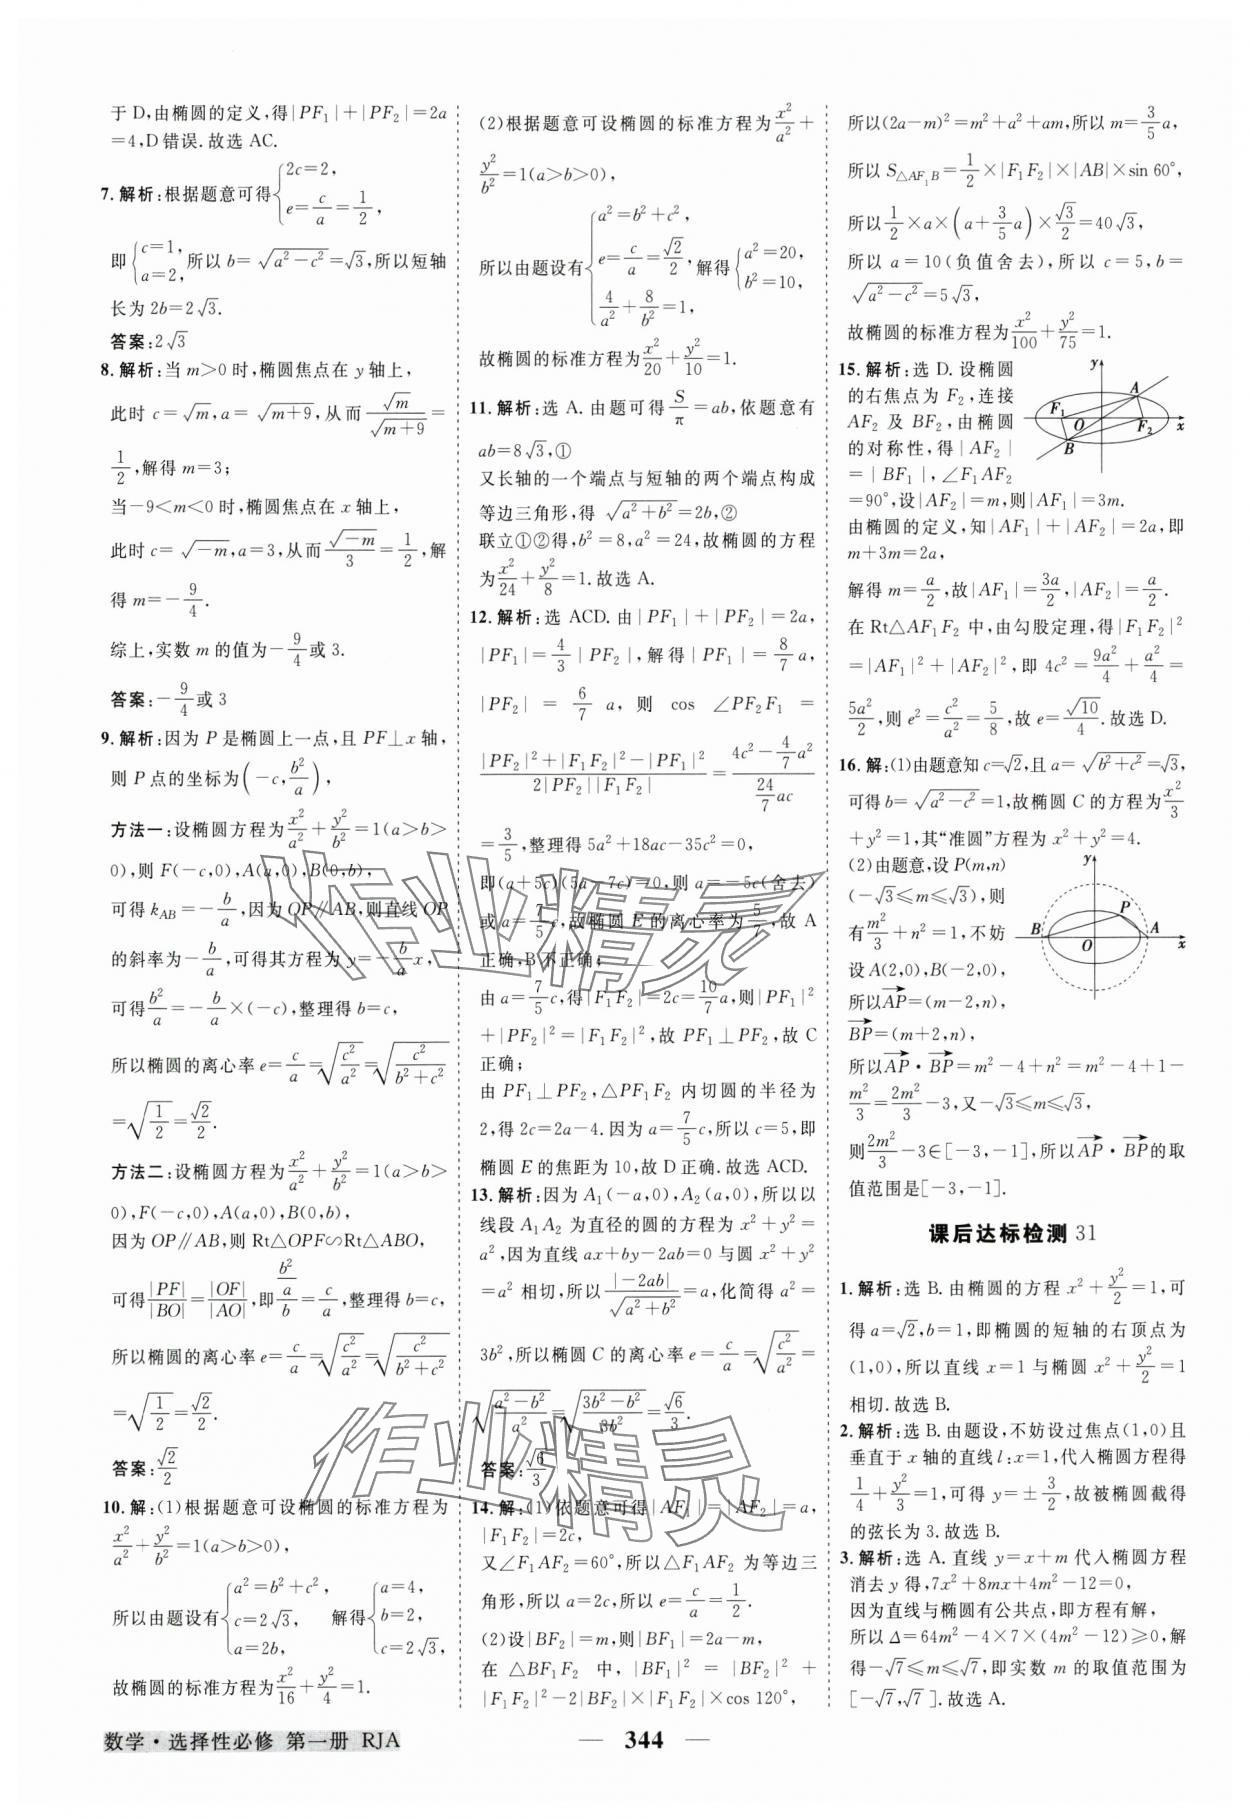 于 D,由椭圆的定义,得|PF₁|+|PF₂|=2a
=4,D 错误.故选 AC.
7.解析:根据题意可得{2c=2, e=c/a=1/2,
即{c=1, a=2,所以 b=√(a²-c²)=√3,所以短轴
长为 2b=2√3.
答案:2√3
8.解析:当 m>0 时,椭圆焦点在 y 轴上,
此时 c=√m,a=√(m+9),从而√m/√(m+9)=
1/2,解得 m=3;
当-9<m<0 时,椭圆焦点在 x 轴上,
此时 c=√(-m),a=3,从而√(-m)/3=1/2,解
得 m=-9/4.
综上,实数 m 的值为-9/4或 3.
答案:-9/4或 3
9.解析:因为 P 是椭圆上一点,且 PF⊥x 轴,
则 P 点的坐标为(-c,b²/a),
方法一:设椭圆方程为x²/a²+y²/b²=1(a>b>
0),则 F(-c,0),A(a,0),B(0,b),
可得 k_AB=-b/a,因为 OP∥AB,则直线 OP
的斜率为-b/a,可得其方程为 y=-b/a x,
可得b²/a=-b/a×(-c),整理得 b=c,
所以椭圆的离心率 e=c/a=√(c²/a²)=√(c²/(b²+c²))
=√(1/2)=√2/2.
方法二:设椭圆方程为x²/a²+y²/b²=1(a>b>
0),F(-c,0),A(a,0),B(0,b),
因为 OP∥AB,则 Rt△OPF∽Rt△ABO,
可得|PF|/|BO|=|OF|/|AO|,即(b²/a)/b=c/a,整理得 b=c,
所以椭圆的离心率 e=c/a=√(c²/a²)=√(c²/(b²+c²))
=√(1/2)=√2/2.
答案:√2/2
10.解:(1)根据题意可设椭圆的标准方程为
x²/a²+y²/b²=1(a>b>0),
所以由题设有{a²=b²+c², c=2√3, a=2b, 解得{a=4, b=2, c=2√3,
故椭圆的标准方程为x²/16+y²/4=1.
(2)根据题意可设椭圆的标准方程为x²/a²+
y²/b²=1(a>b>0),
所以由题设有{a²=b²+c², e=c/a=√2/2, 4/a²+8/b²=1, 解得{a²=20, b²=10,
故椭圆的标准方程为x²/20+y²/10=1.
11.解析:选 A.由题可得S/π=ab,依题意有
ab=8√3,①
又长轴的一个端点与短轴的两个端点构成
等边三角形,得 √(a²+b²)=2b,②
联立①②得,b²=8,a²=24,故椭圆的方程
为x²/24+y²/8=1.故选 A.
12.解析:选 ACD.由|PF₁|+|PF₂|=2a,
|PF₁|=4/3|PF₂|,解得|PF₁|=8/7 a,
|PF₂|=6/7 a,则 cos∠PF₂F₁=
(|PF₂|²+|F₁F₂|²-|PF₁|²)/(2|PF₂||F₁F₂|)=(4c²-4/7 a²)/(24/7 ac)
=3/5,整理得 5a²+18ac-35c²=0,
即(a+5c)(5a-7c)=0,则 a=-5c(舍去)
或 a=7/5 c,故椭圆 E 的离心率为5/7,故 A
正确,B 不正确;
由 a=7/5 c,得|F₁F₂|=2c=10/7 a,则|PF₁|²
+|PF₂|²=|F₁F₂|²,故 PF₁⊥PF₂,故 C
正确;
由 PF₁⊥PF₂,△PF₁F₂ 内切圆的半径为
2,得 2c=2a-4.因为 a=7/5 c,所以 c=5,即
椭圆 E 的焦距为 10,故 D 正确.故选 ACD.
13.解析:因为 A₁(-a,0),A₂(a,0),所以以
线段 A₁A₂ 为直径的圆的方程为 x²+y²=
a²,因为直线 ax+by-2ab=0 与圆 x²+y²
=a² 相切,所以|-2ab|/√(a²+b²)=a,化简得 a²=
3b²,所以椭圆 C 的离心率 e=c/a=√(c²/a²)=
√((a²-b²)/a²)=√((3b²-b²)/3b²)=√6/3.
答案:√6/3
14.解:(1)依题意可得|AF₁|=|AF₂|=a,
|F₁F₂|=2c,
又∠F₁AF₂=60°,所以△F₁AF₂ 为等边三
角形,所以 a=2c,所以 e=c/a=1/2.
(2)设|BF₂|=m,则|BF₁|=2a-m,
在 △BF₁F₂ 中,|BF₁|²=|BF₂|²+
|F₁F₂|²-2|BF₂|×|F₁F₂|×cos 120°,
所以(2a-m)²=m²+a²+am,所以 m=3/5 a,
所以 S△AF₁B=1/2×|F₁F₂|×|AB|×sin 60°,
所以1/2×a×(a+3/5 a)×√3/2=40√3,
所以 a=10(负值舍去),所以 c=5,b=
√(a²-c²)=5√3,
故椭圆的标准方程为x²/100+y²/75=1.
15.解析:选 D.设椭圆
的右焦点为 F₂,连接
AF₂ 及 BF₂,由椭圆
的对称性,得|AF₂|
=|BF₁|,∠F₁AF₂
=90°,设|AF₂|=m,则|AF₁|=3m.
y A F₁ O F₂ x B
由椭圆的定义,知|AF₁|+|AF₂|=2a,即
m+3m=2a,
解得 m=a/2,故|AF₁|=3a/2,|AF₂|=a/2.
在 Rt△AF₁F₂ 中,由勾股定理,得|F₁F₂|²
=|AF₁|²+|AF₂|²,即 4c²=9a²/4+a²/4=
5a²/2,则 e²=c²/a²=5/8,故 e=√10/4.故选 D.
16.解:(1)由题意知 c=√2,且 a=√(b²+c²)=√3,
可得 b=√(a²-c²)=1,故椭圆 C 的方程为x²/3
+y²=1,其“准圆”方程为 x²+y²=4.
(2)由题意,设 P(m,n)
(-√3≤m≤√3),则
有m²/3+n²=1,不妨
设 A(2,0),B(-2,0),
所以AP→=(m-2,n),
BP→=(m+2,n),
y P B A O x
所以AP→·BP→=m²-4+n²=m²-4+1-
m²/3=2m²/3-3,又-√3≤m≤√3,
则2m²/3-3∈[-3,-1],所以AP→·BP→的取
值范围是[-3,-1].
课后达标检测 31
1.解析:选 B.由椭圆的方程 x²+y²/2=1,可
得 a=√2,b=1,即椭圆的短轴的右顶点为
(1,0),所以直线 x=1 与椭圆 x²+y²/2=1
相切.故选 B.
2.解析:选 B.由题设,不妨设过焦点(1,0)且
垂直于 x 轴的直线 l:x=1,代入椭圆方程得
1/4+y²/3=1,可得 y=±3/2,故被椭圆截得
的弦长为 3.故选 B.
3.解析:选 A.直线 y=x+m 代入椭圆方程
消去 y 得,7x²+8mx+4m²-12=0,
因为直线与椭圆有公共点,即方程有解,
所以 Δ=64m²-4×7×(4m²-12)≥0,解
得-√7≤m≤√7,即实数 m 的取值范围为
[-√7,√7].故选 A.
作业精灵
作业精灵
数学·选择性必修 第一册 RJA
— 344 —